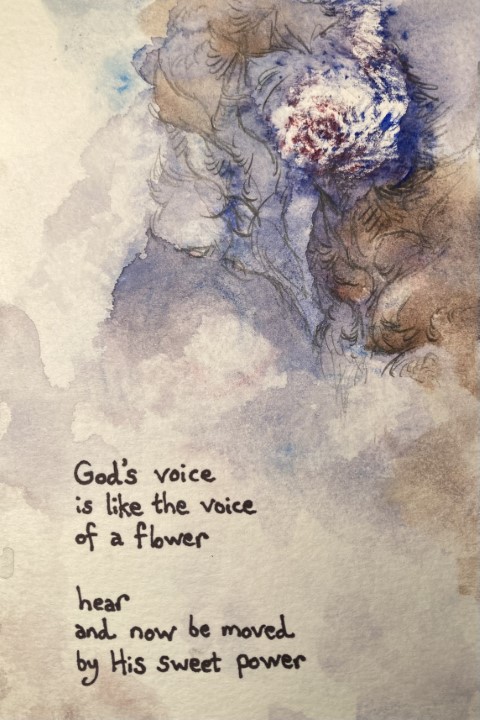 God's voice
is like the voice
of a flower
hear
and now be moved
by His sweet power